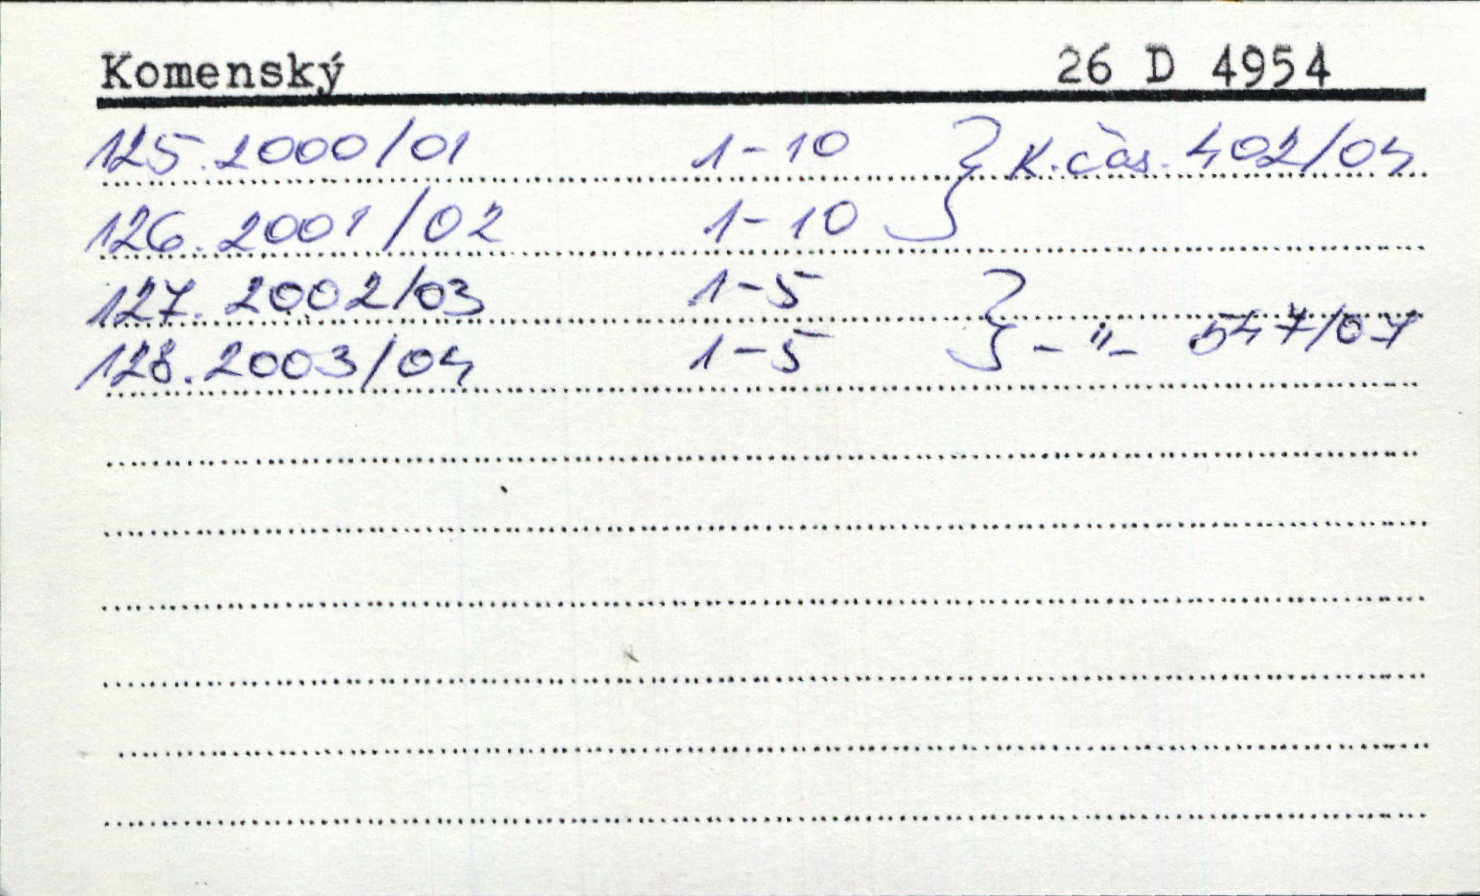 Komenský 26 D 4954
125. 2000/01 1-10 } K.čas. 402/04
126. 2001/02 1-10
127. 2002/03 1-5
128. 2003/04 1-5 } -"- 547/07